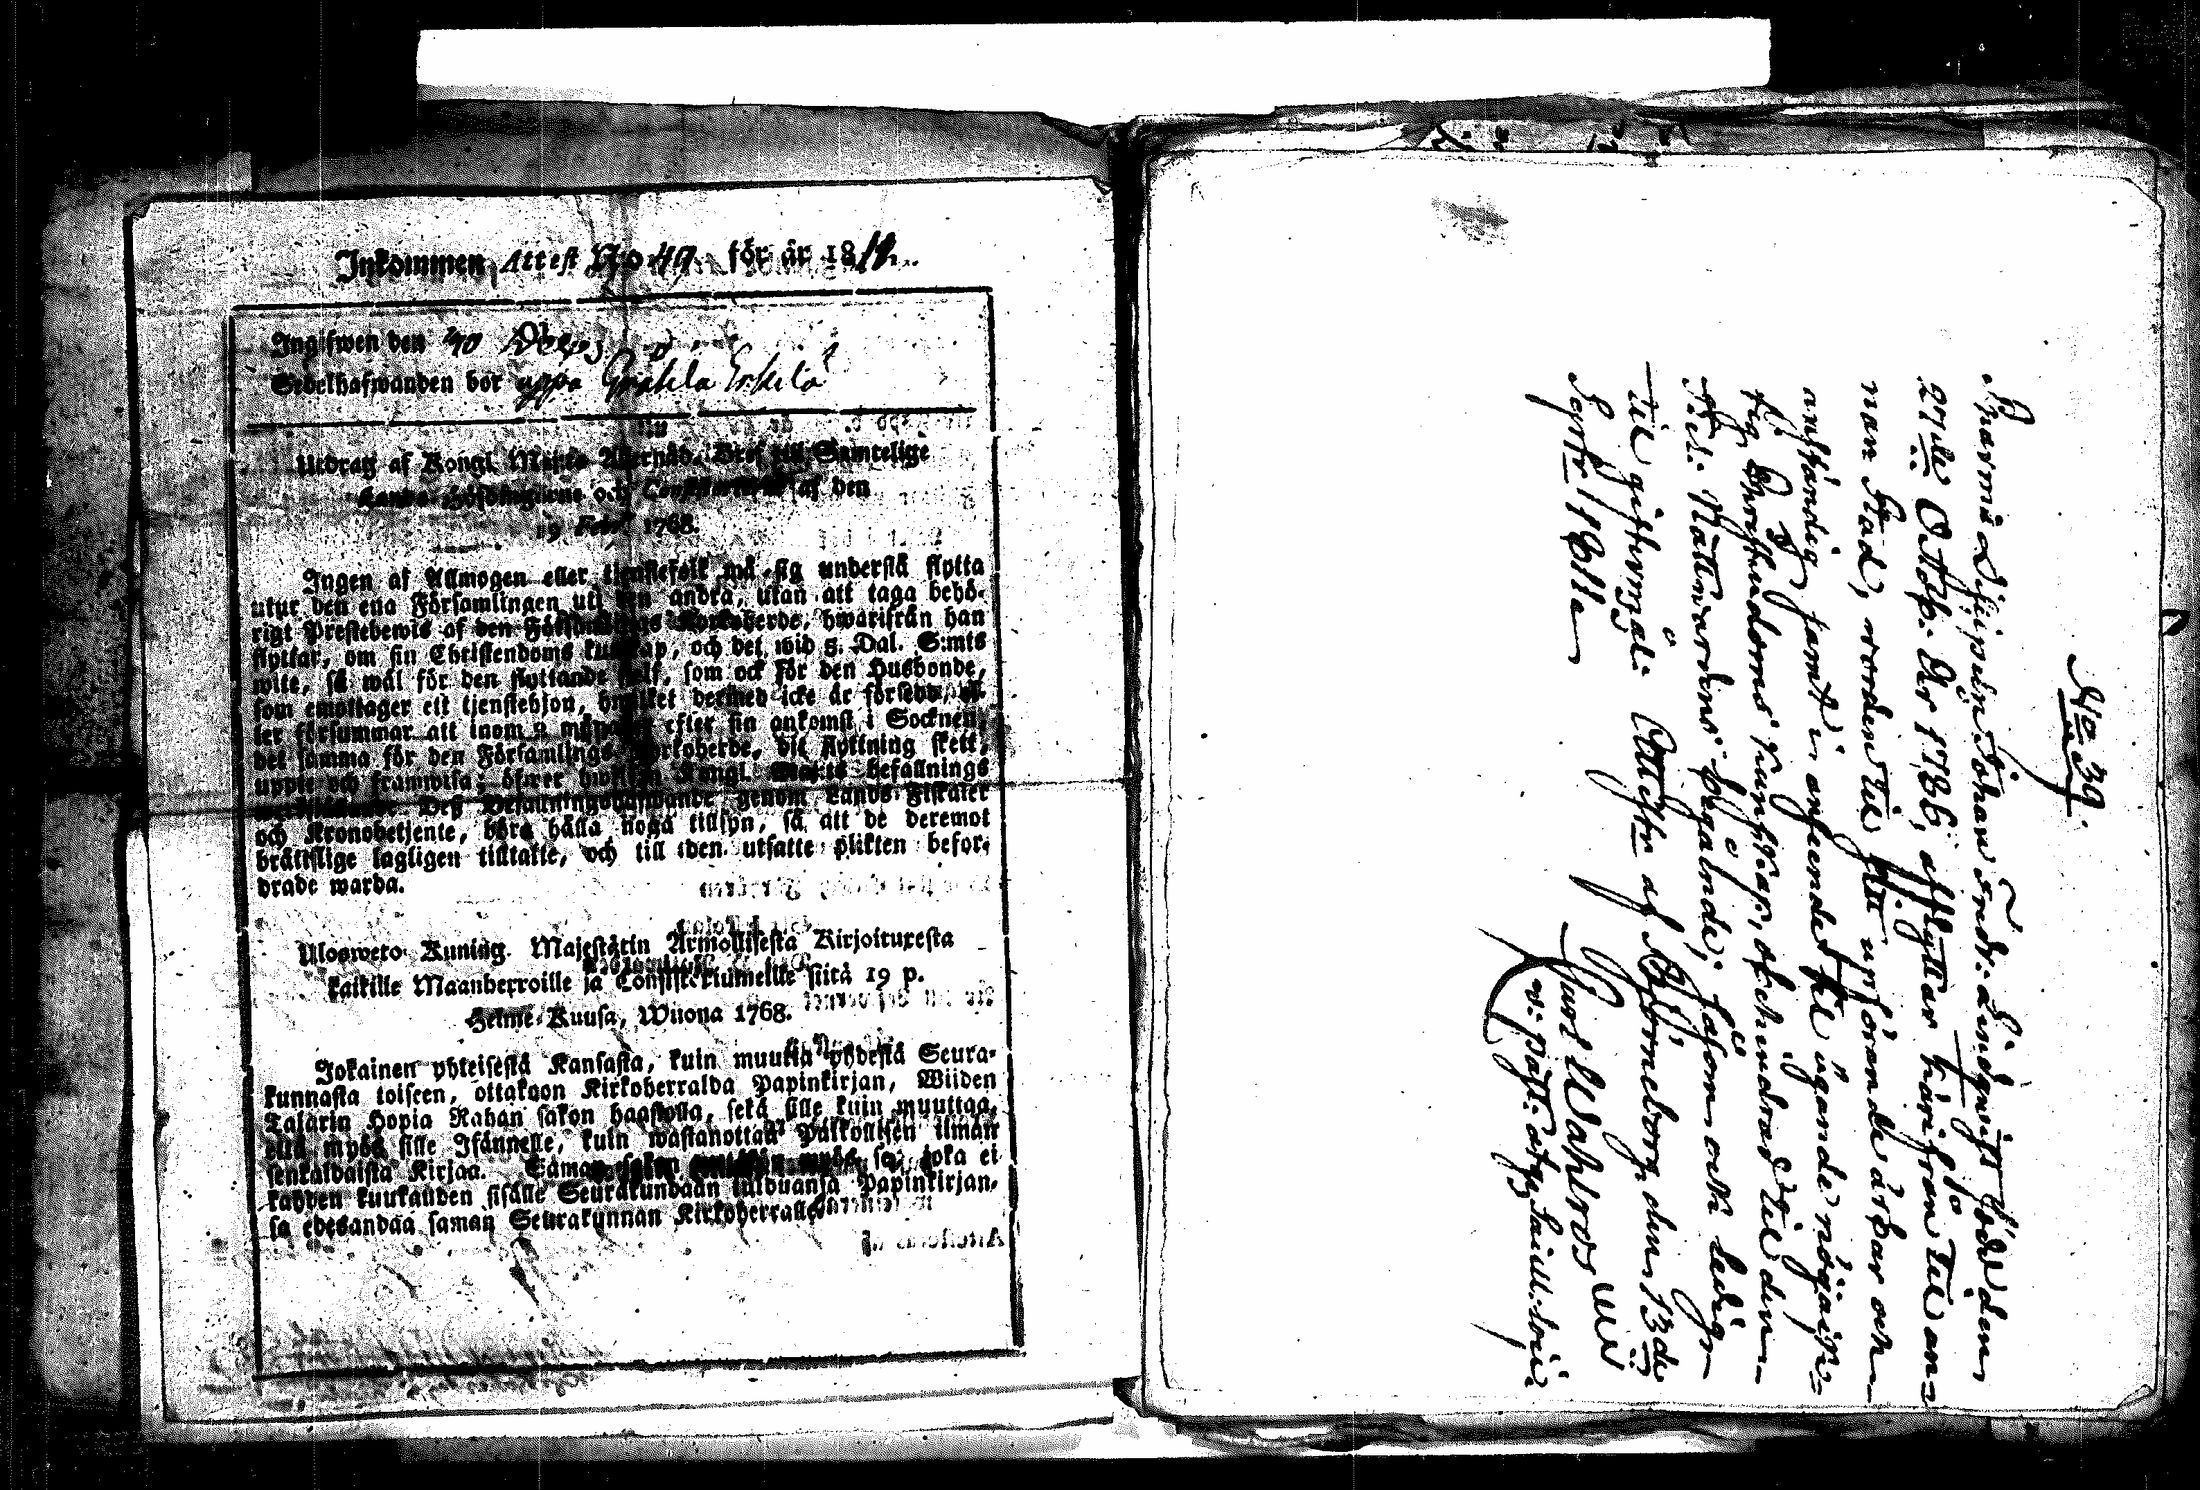 Inkommen Attest No 49. för år 181
Ingifwen den
Sedelhafwanden bor uppå Erkilä
Utdrag af Kongl. Maj:ts Allernåd. Bref till Samtelige
och Consistorierne af den
19 Febr. 1768.
Ingen af Allmogen eller tjenstefolk må sig understå flytta
utur den ena Församlingen uti den andra, utan att taga behö-
rigt Prestebewis af den Församlings Kyrkoherde, hwarifrån han
flyttar, om sin Christendoms kunskap, och det wid 5. Dal. S:mts
wite, så wäl för den flyttande sjelf, som ock för den Husbonde,
som emottager ett tjenstehjon, hwilket dermed icke är försedt, el-
ler försummar att inom 2 månader efter sin ankomst i Socknen,
det samma för den Församlings Kyrkoherde, dit flyttning skett,
uppte och framwisa; öfwer hwilken Kongl. Maj:ts befallnings
Deß Befallningshafwande genom Lands Fiskaler
och Kronobetjente, böra hålla noga tillsyn, så att de deremot
brättslige lagligen tilltalte, och till den utsatte plikten befor-
drade warda.
Ulosweto Kuning. Majestätin Armollisesta Kirjoituxesta
kaikille Maanherroille ja Consistoriumeille siitä 19 p.
Helme-Kuusa, Wuona 1768.
Jokainen yhteisestä Kansasta, kuin muutta yhdestä Seura-
kunnasta toiseen, ottakoon Kirkoherralda Papinkirjan, Wiiden
Talarin Hopia Rahan sakon haastolla, sekä sille kuin muuttaa,
että myös sille Isännelle, kuin wastanottaa Palkollisen ilman
senkaldaista Kirjaa. Saman sakon myös se, joka ei
kahden kuukauden sisälle Seurakundaan tulduansa Papinkirjan-
sa edesandaa saman Seurakunnan Kirkoherralle.
No 39.
Johan Fredr: Lindqvist född den
27de Octob. År 1786, afflyttar härifrån till an-
nan Stad, worden till sitt uppförande ärbar och
anständig samt i anseende till ägande
sig Christendoms kunskap, till den
Hel: Nattvardens begående, såsom och ledig
till giftermål. Attestr af Björneborg den 13de
Septr 1811
Carl Wahlroos